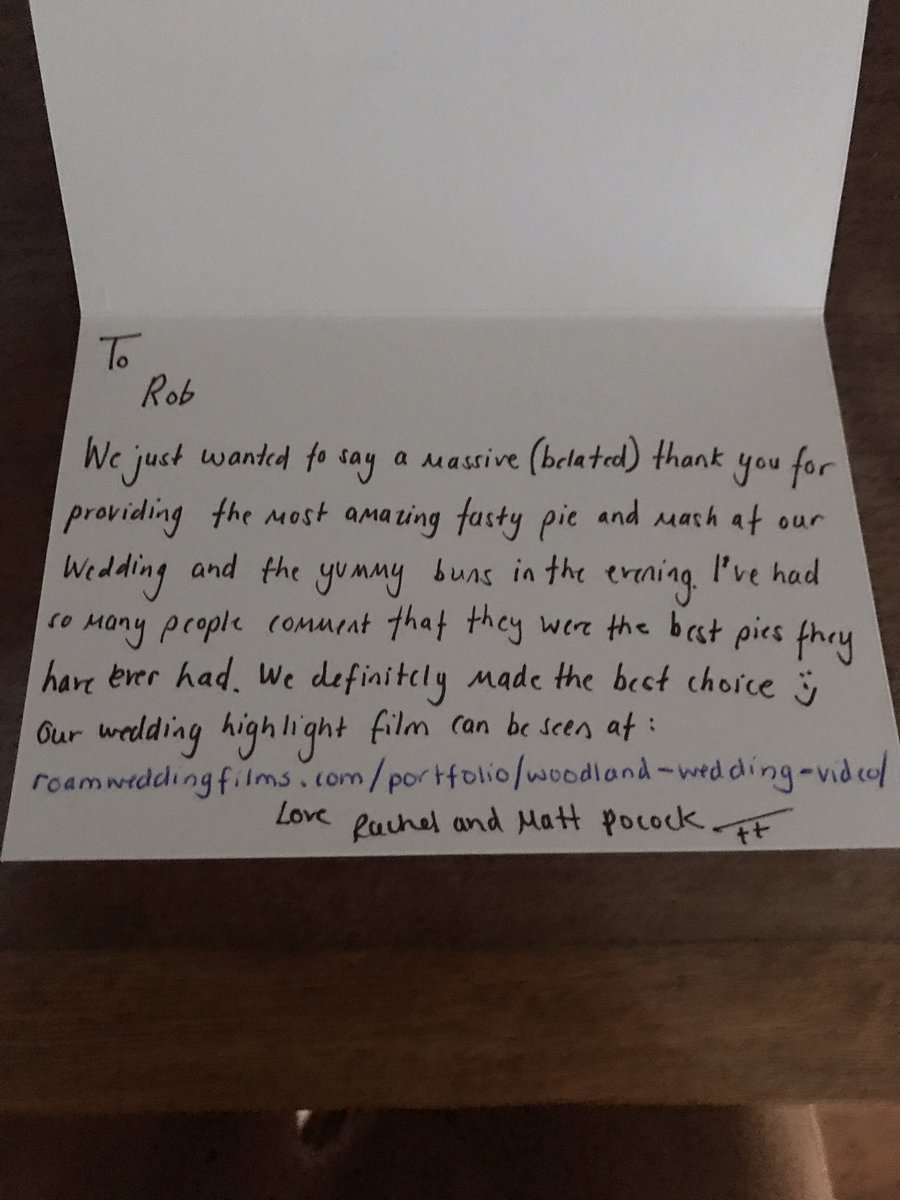 To
Rob
We just wanted to say a massive (belated) thank you for
providing the most amazing tasty pie and mash at our
Wedding and the yummy buns in the evening. I've had
so many people comment that they were the best pies they
have ever had. We definitely made the best choice :)
Our wedding highlight film can be seen at:
roamweddingfilms.com/portfolio/woodland-wedding-video/
Love Rachel and Matt Pocock